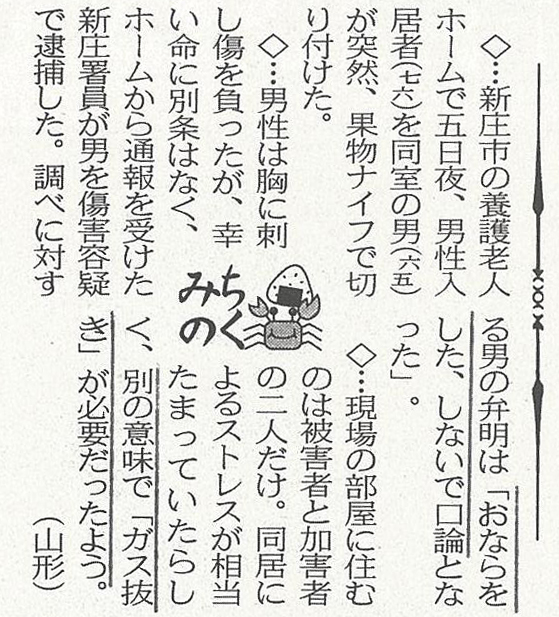 ◇…新庄市の養護老人
ホームで五日夜、男性入
居者(七六)を同室の男(六五)
が突然、果物ナイフで切
り付けた。
◇…男性は胸に刺
し傷を負ったが、幸
い命に別条はなく、
ホームから通報を受けた
新庄署員が男を傷害容疑
で逮捕した。調べに対す
みちのく
る男の弁明は「おならを
した、しないで口論とな
った」。
◇…現場の部屋に住む
のは被害者と加害者
の二人だけ。同居に
よるストレスが相当
たまっていたらし
く、別の意味で「ガス抜
き」が必要だったよう。
(山形)